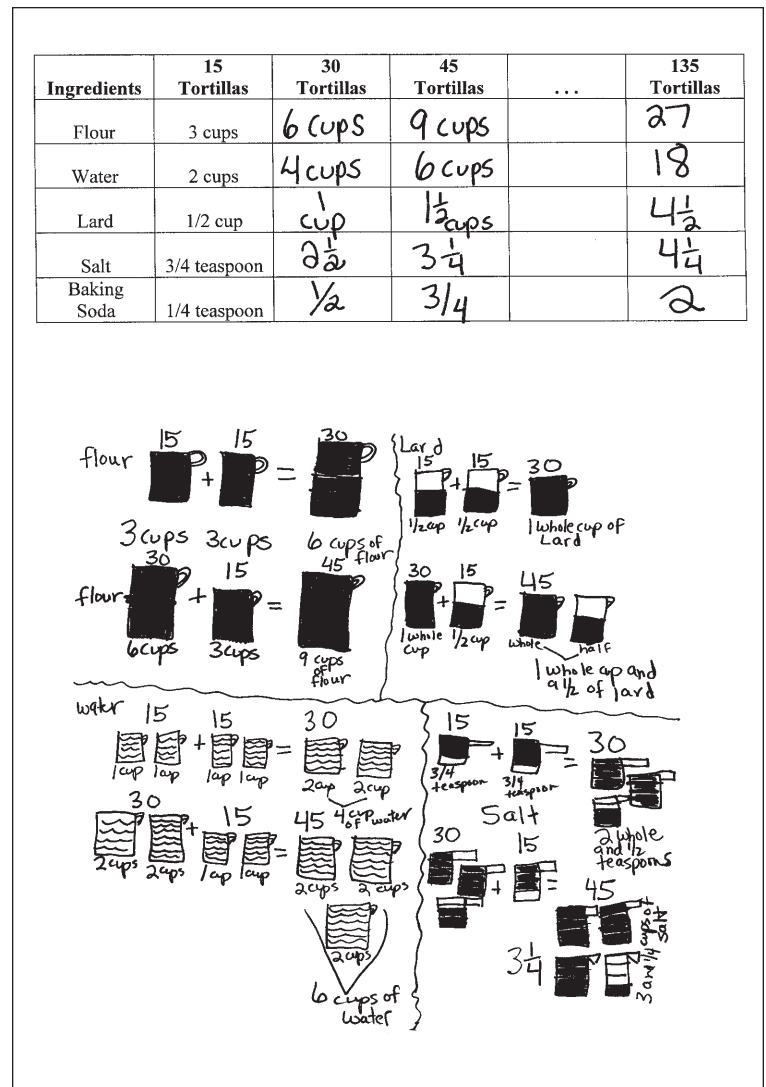 Ingredients 15 Tortillas 30 Tortillas 45 Tortillas ... 135 Tortillas
Flour 3 cups 6 cups 9 cups 27
Water 2 cups 4 cups 6 cups 18
Lard 1/2 cup 1 cup 1 1/2 cups 4 1/2
Salt 3/4 teaspoon 2 1/2 3 1/4 4 1/4
Baking Soda 1/4 teaspoon 1/2 3/4 2
flour 15 + 15 = 30
3 cups 3 cups 6 cups of flour
flour 30 + 15 = 45
6 cups 3 cups 9 cups of flour
Lard
15 + 15 = 30
1/2 cup 1/2 cup 1 whole cup of Lard
30 + 15 = 45
1 whole cup 1/2 cup whole half
1 whole cup and a 1/2 of lard
water
15 + 15 = 30
1 cup 1 cup 1 cup 1 cup 2 cup 2 cup
4 cup of water
30 + 15 = 45
2 cups 2 cups 1 cup 1 cup 2 cups 2 cups
2 cups
6 cups of water
15 + 15 = 30
3/4 teaspoon 3/4 teaspoon
2 whole and 1/2 teaspoons
Salt
30 + 15 = 45
3 1/4
3 and 1/4 cups of salt